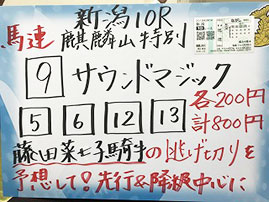 新潟10R
馬連 麒麟山特別
9 サウンドマジック
5 6 12 13 各200円
計800円
藤田菜七子騎手の逃げ切りを
予想して!先行&降級中心に